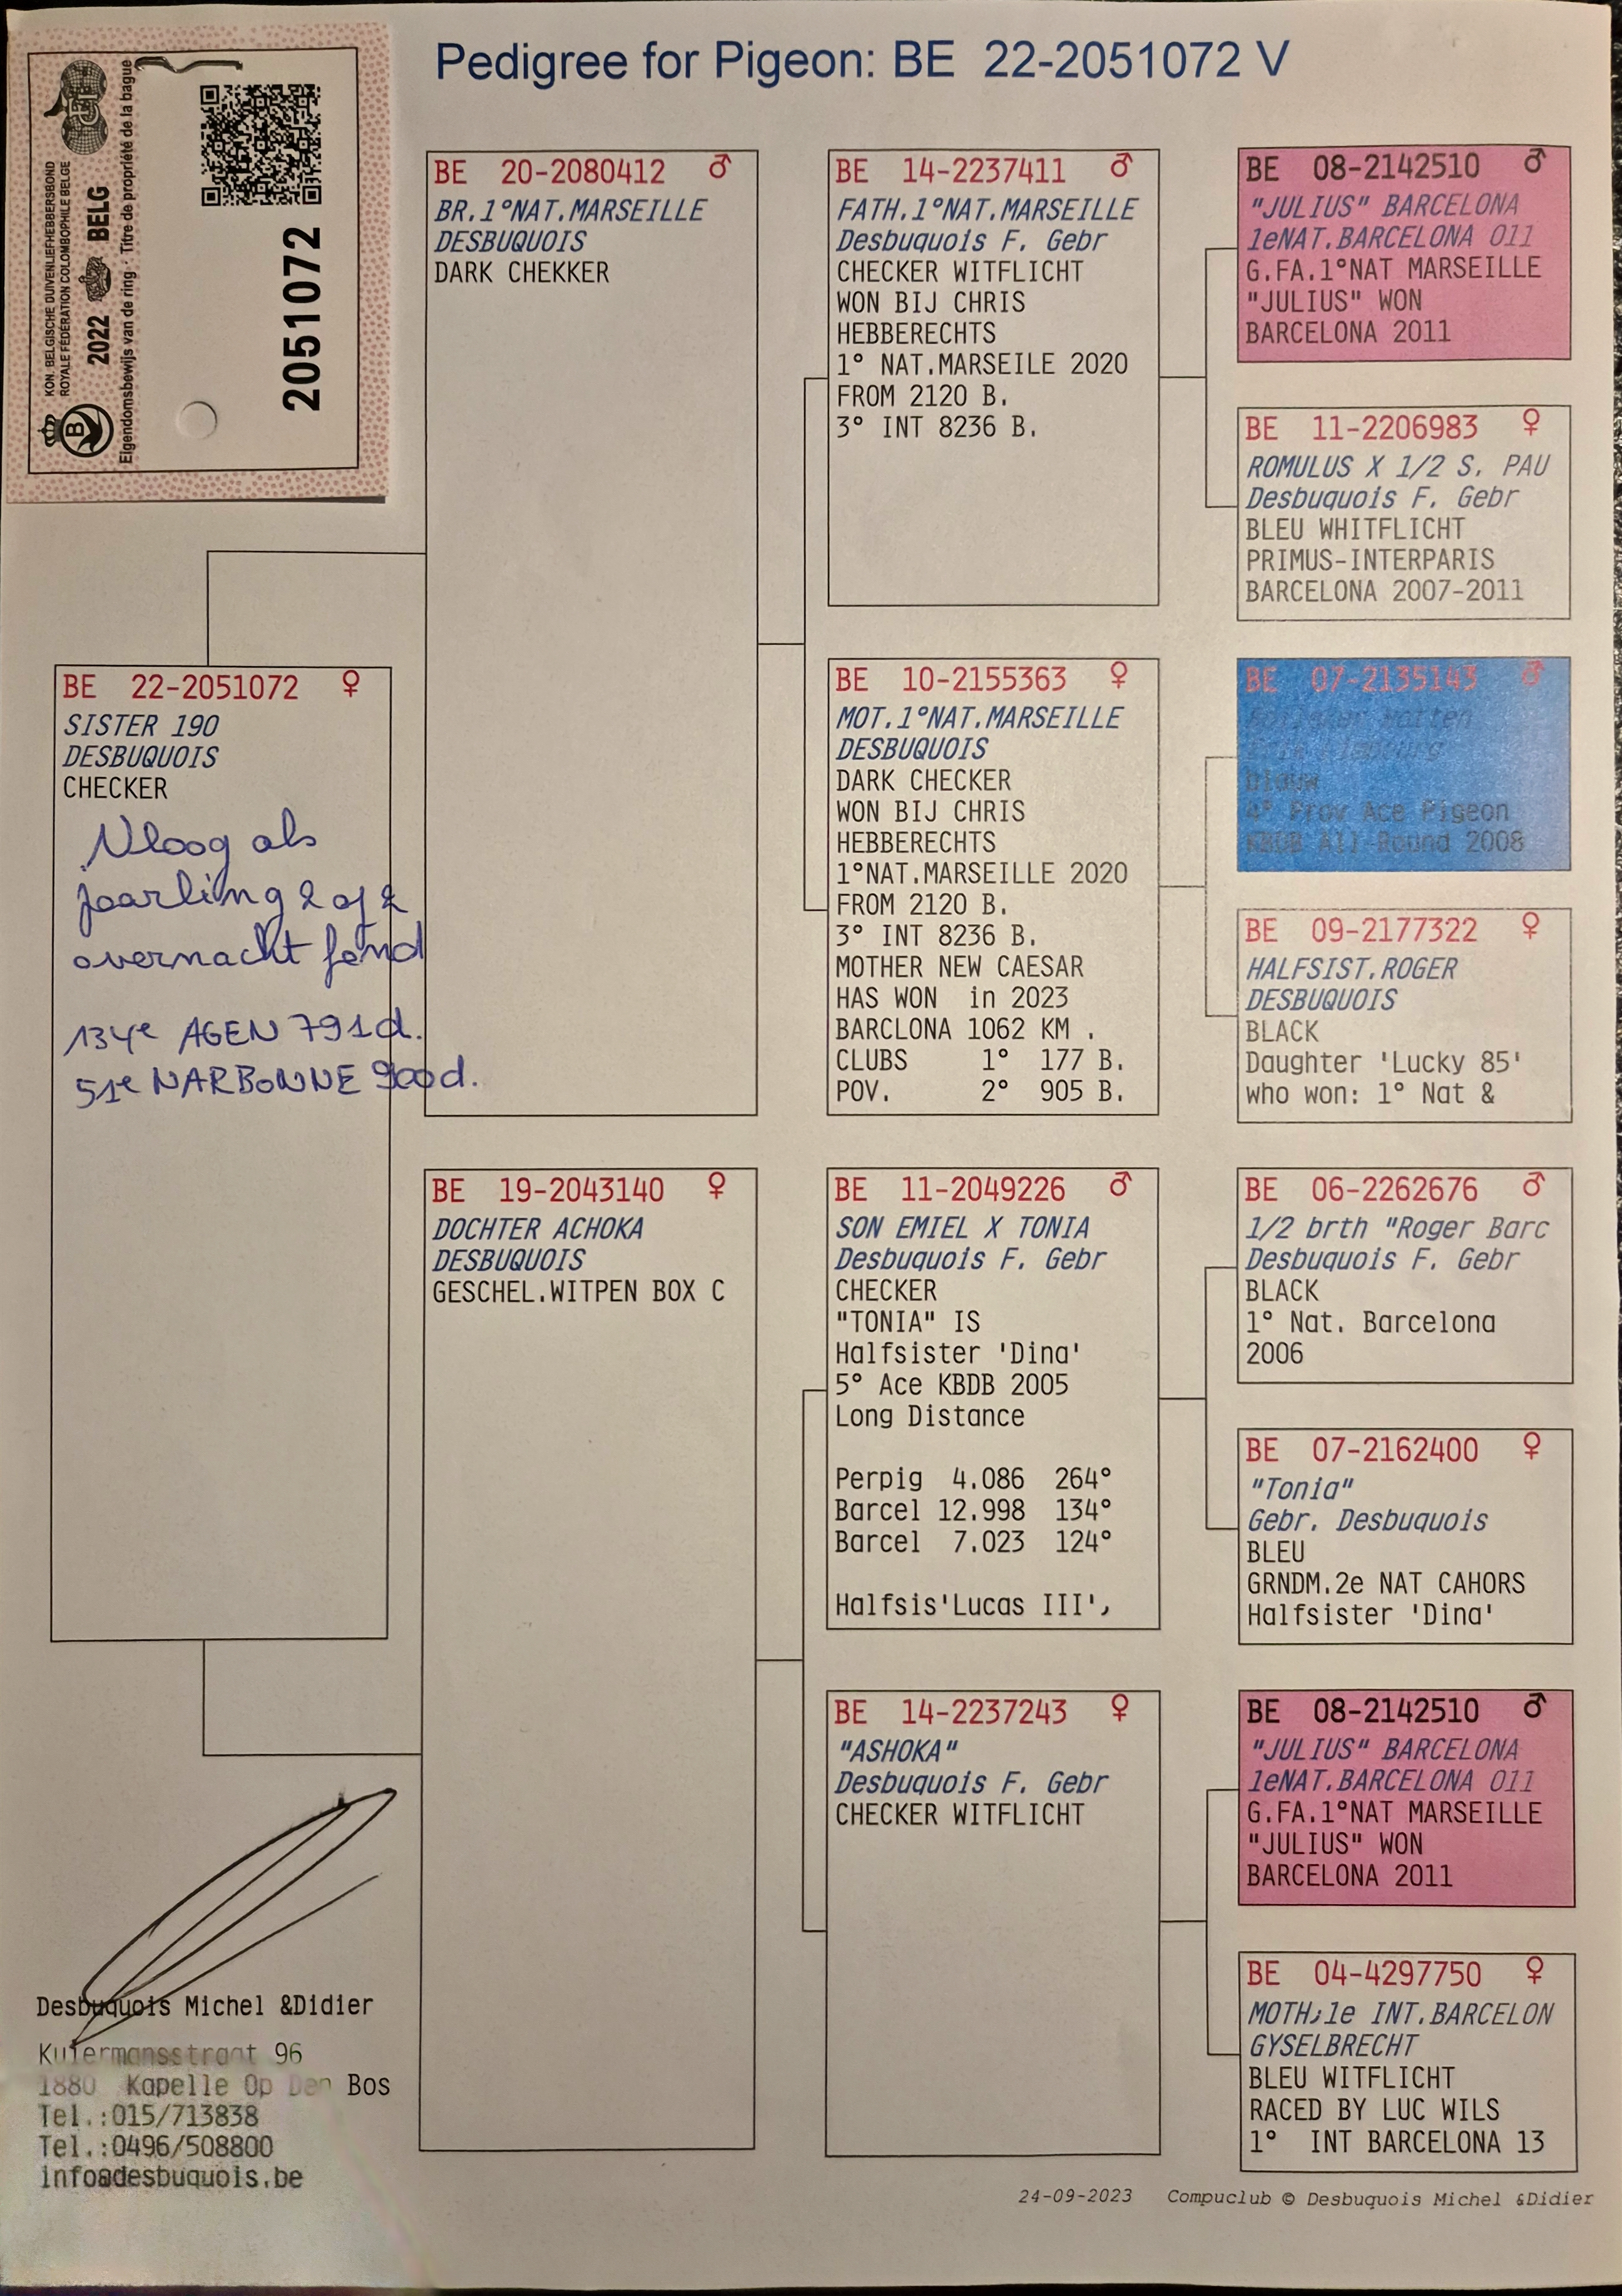 Pedigree for Pigeon: BE 22-2051072 V
KON. BELGISCHE DUIVENLIEFHEBBERSBOND
ROYALE FÉDÉRATION COLOMBOPHILE BELGE
2022 BELG
Eigendomsbewijs van de ring - Titre de propriété de la bague
2051072
B
BE 22-2051072 ♀
SISTER 190
DESBUQUOIS
CHECKER
Vloog als
jaarling 2 op 2
overnacht fond
134e AGEN 791d.
51e NARBONNE 900d.
BE 20-2080412 ♂
BR.1°NAT.MARSEILLE
DESBUQUOIS
DARK CHEKKER
BE 19-2043140 ♀
DOCHTER ACHOKA
DESBUQUOIS
GESCHEL.WITPEN BOX C
BE 14-2237411 ♂
FATH.1°NAT.MARSEILLE
Desbuquois F. Gebr
CHECKER WITFLICHT
WON BIJ CHRIS
HEBBERECHTS
1° NAT.MARSEILE 2020
FROM 2120 B.
3° INT 8236 B.
BE 10-2155363 ♀
MOT.1°NAT.MARSEILLE
DESBUQUOIS
DARK CHECKER
WON BIJ CHRIS
HEBBERECHTS
1°NAT.MARSEILLE 2020
FROM 2120 B.
3° INT 8236 B.
MOTHER NEW CAESAR
HAS WON in 2023
BARCLONA 1062 KM .
CLUBS 1° 177 B.
POV. 2° 905 B.
BE 11-2049226 ♂
SON EMIEL X TONIA
Desbuquois F. Gebr
CHECKER
"TONIA" IS
Halfsister 'Dina'
5° Ace KBDB 2005
Long Distance
Perpig 4.086 264°
Barcel 12.998 134°
Barcel 7.023 124°
Halfsis'Lucas III',
BE 14-2237243 ♀
"ASHOKA"
Desbuquois F. Gebr
CHECKER WITFLICHT
BE 08-2142510 ♂
"JULIUS" BARCELONA
1eNAT.BARCELONA 011
G.FA.1°NAT MARSEILLE
"JULIUS" WON
BARCELONA 2011
BE 11-2206983 ♀
ROMULUS X 1/2 S. PAU
Desbuquois F. Gebr
BLEU WHITFLICHT
PRIMUS-INTERPARIS
BARCELONA 2007-2011
BE 07-2135143 ♂
Blauw
4° Prov Ace Pigeon
KBDB All-Round 2008
BE 09-2177322 ♀
HALFSIST.ROGER
DESBUQUOIS
BLACK
Daughter 'Lucky 85'
who won: 1° Nat &
BE 06-2262676 ♂
1/2 brth "Roger Barc
Desbuquois F. Gebr
BLACK
1° Nat. Barcelona
2006
BE 07-2162400 ♀
"Tonia"
Gebr. Desbuquois
BLEU
GRNDM.2e NAT CAHORS
Halfsister 'Dina'
BE 08-2142510 ♂
"JULIUS" BARCELONA
1eNAT.BARCELONA 011
G.FA.1°NAT MARSEILLE
"JULIUS" WON
BARCELONA 2011
BE 04-4297750 ♀
MOTH;1e INT.BARCELON
GYSELBRECHT
BLEU WITFLICHT
RACED BY LUC WILS
1° INT BARCELONA 13
Desbuquois Michel &Didier
Kuiermansstraat 96
1880 Kapelle Op Den Bos
Tel.:015/713838
Tel.:0496/508800
info@desbuquois.be
24-09-2023 Compuclub © Desbuquois Michel &Didier